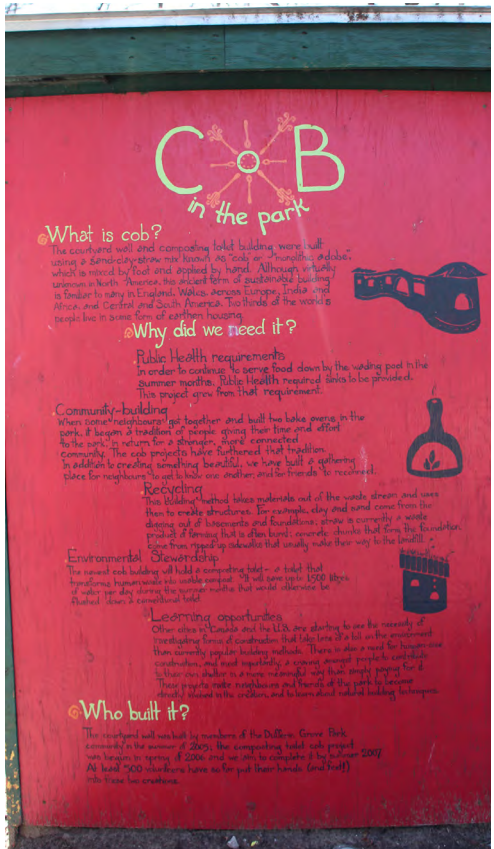 COB
in the park
What is cob?
The courtyard wall and composting toilet building were built
using a sand-clay-straw mix known as "cob" or "monolithic adobe",
which is mixed by foot and applied by hand. Although virtually
unknown in North America, this ancient form of sustainable building
is familiar to many in England, Wales, across Europe, India and
Africa, and Central and South America. Two thirds of the world's
people live in some form of earthen housing.
Why did we need it?
Public Health requirements
In order to continue to serve food down by the wading pool in the
summer months, Public Health required sinks to be provided.
This project grew from that requirement.
Community-building
When some neighbours got together and built two bake ovens in the
park, it began a tradition of people giving their time and effort
to the park, in return for a stronger, more connected
community. The cob projects have furthered that tradition.
In addition to creating something beautiful, we have built a gathering
place for neighbours to get to know one another, and for friends to reconnect.
Recycling
This building method takes materials out of the waste stream and uses
them to create structures. For example, clay and sand come from the
digging out of basements and foundations; straw is currently a waste
product of farming that is often burnt; concrete chunks that form the foundation
come from ripped-up sidewalks that usually make their way to the landfill.
Environmental Stewardship
The newest cob building will hold a composting toilet - a toilet that
transforms human waste into usable compost. It will save up to 1,500 litres
of water per day during the summer months that would otherwise be
flushed down a conventional toilet.
Learning opportunities
Other cities in Canada and the U.S. are starting to see the necessity of
investigating forms of construction that take less of a toll on the environment
than currently popular building methods. There is also a need for
construction, and most importantly, a craving amongst people to contribute
to their own shelter in a more meaningful way than simply paying for it.
These projects make neighbours and friends of the park to become
directly involved in the creation, and to learn about natural building techniques.
Who built it?
The courtyard wall was built by members of the Dufferin Grove Park
community in the summer of 2005; the composting toilet cob project
was begun in spring of 2006 and we aim to complete it by summer 2007.
At least 500 volunteers have so far put their hands (and feet!)
into these two creations.